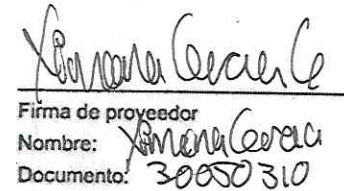 Ximena Garcia G
Firma de proveedor
Nombre: Ximena Garcia
Documento: 30050310